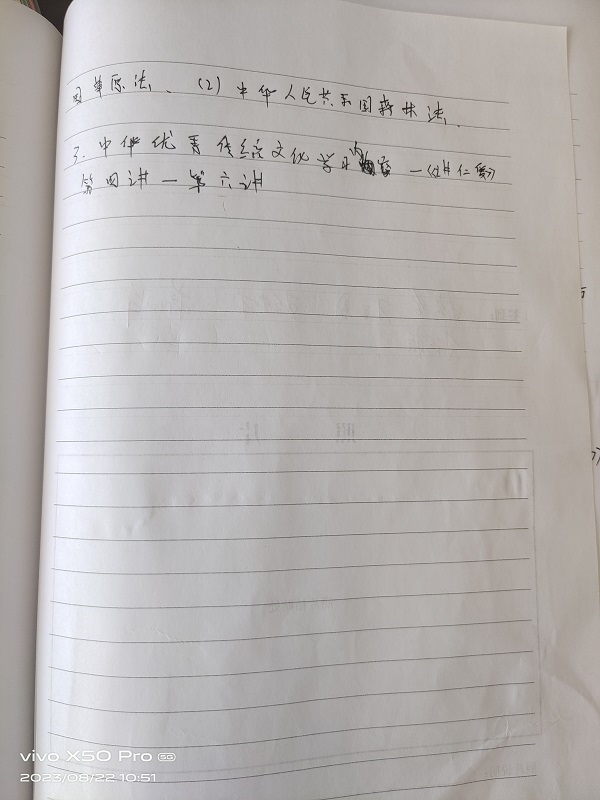 国草原法、(2)中华人民共和国森林法、
3、中华优秀传统文化学习内容 一《讲仁爱》
第四讲一第六讲
vivo X50 Pro 5G
2023/08/22 10:51